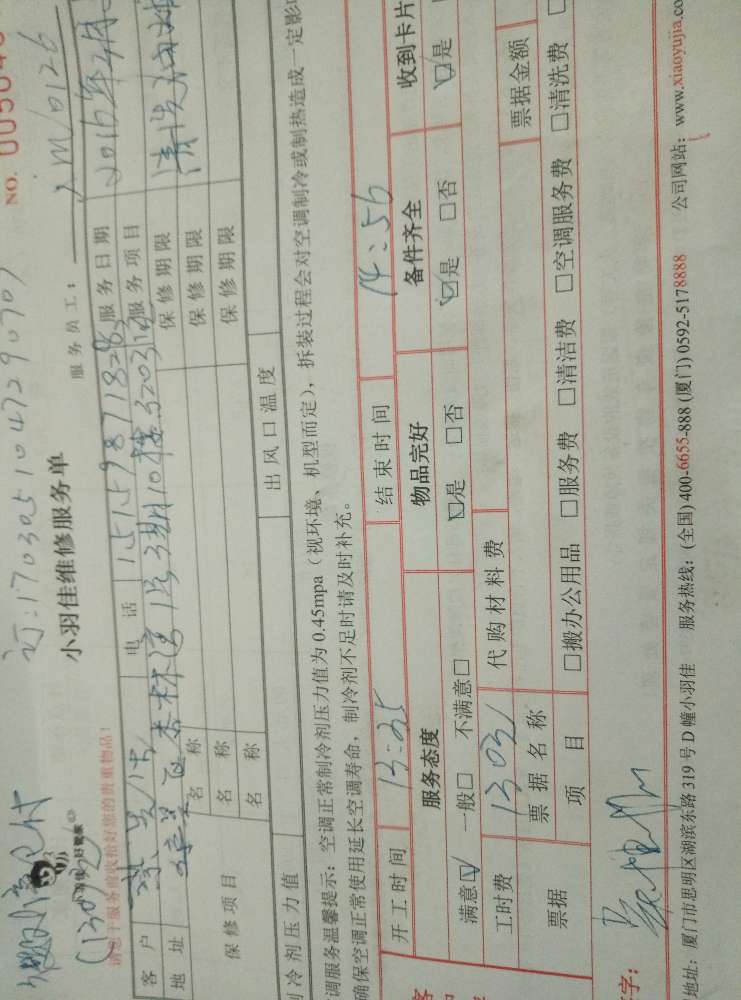 订:170305104729070
NO. 005046
小羽佳维修服务单
服务员工:
XM10126
请您于服务前收拾好您的贵重物品!
客户
电话
15159871828
服务日期
地址
杏林湾1号3期10楼
服务项目
清洗油烟
保修项目
名称
保修期限
名称
保修期限
名称
保修期限
冷剂压力值
出风口温度
调服务温馨提示:空调正常制冷剂压力值为0.45mpa(视环境、机型而定),拆装过程会对空调制冷或制热造成一定影
确保空调正常使用延长空调寿命,制冷剂不足时请及时补充。
开工时间
13:35
结束时间
14:56
服务态度
物品完好
备件齐全
收到卡片
满意☑ 一般□ 不满意□
☑是 □否
☑是 □否
☑是
工时费
130元
代购材料费
票据
票据名称
票据金额
项目
□搬办公用品 □服务费 □清洁费 □空调服务费 □清洗费
字:
地址:厦门市思明区湖滨东路319号D幢小羽佳 服务热线:(全国)400-6655-888(厦门)0592-5178888 公司网站:www.xiaoyujia.co